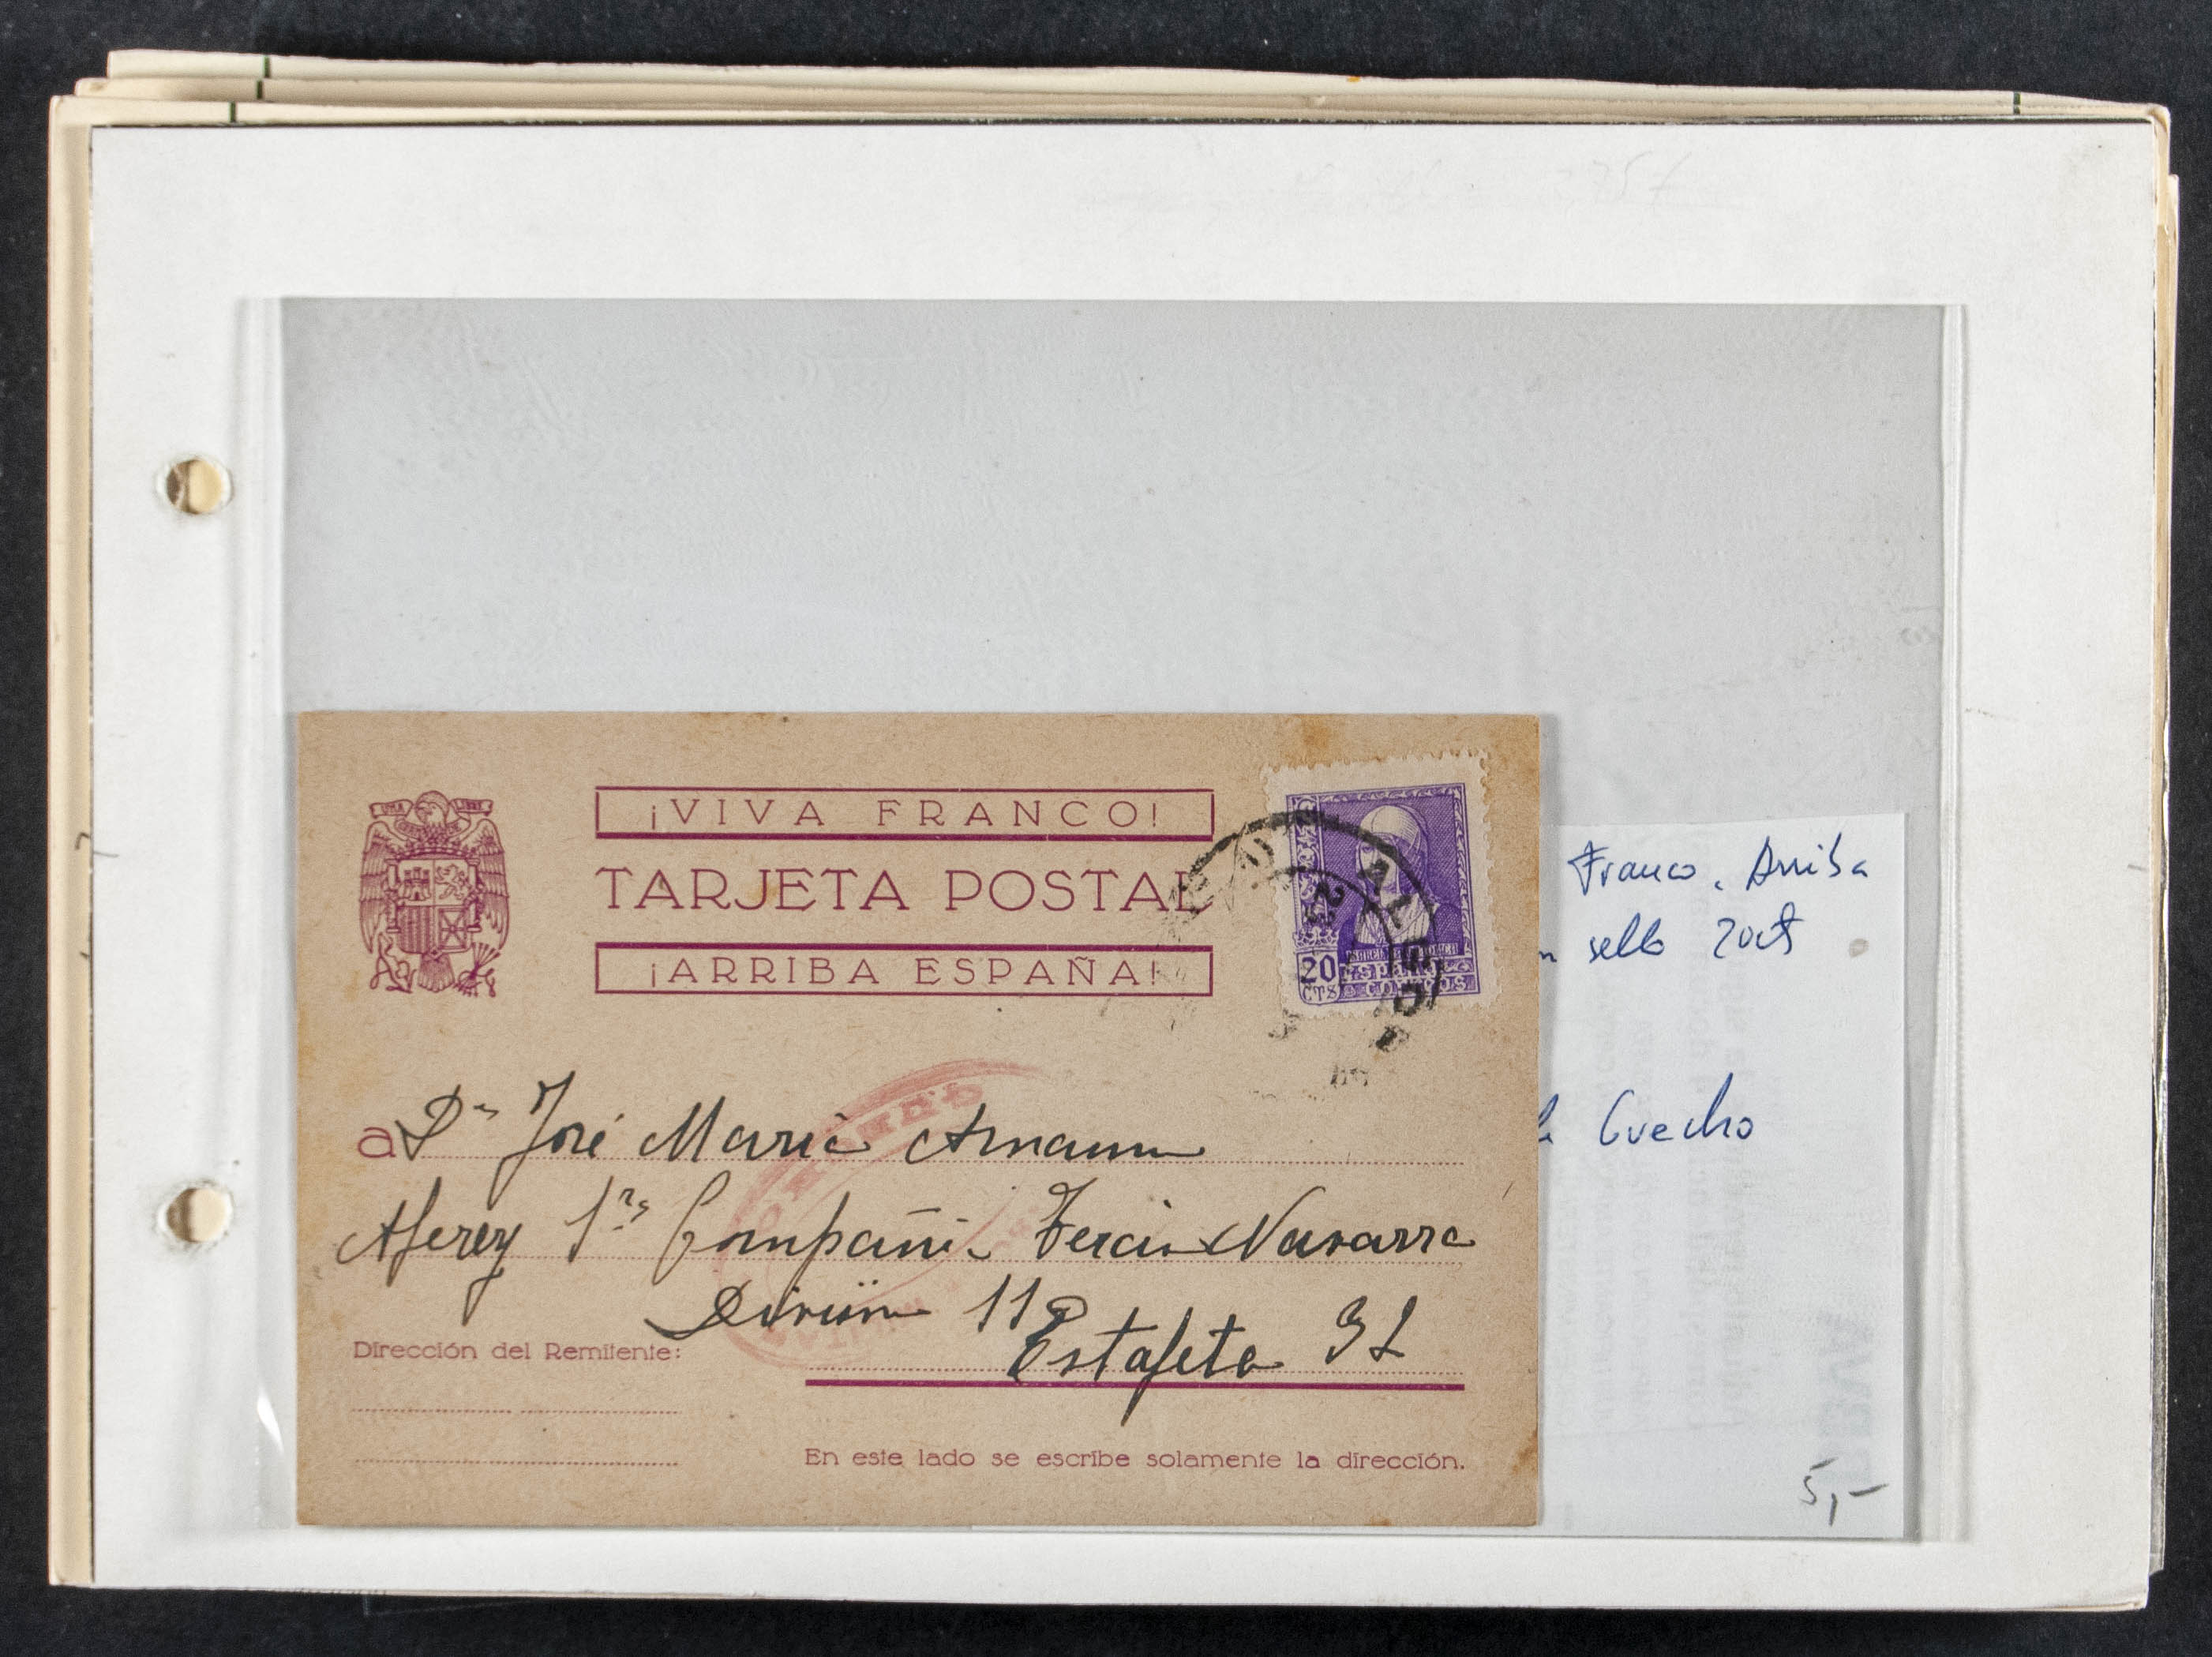 UNA LIBRE
¡VIVA FRANCO!
TARJETA POSTAL
¡ARRIBA ESPAÑA!
20
CTS
ESPAÑA
CORREOS
a Dn José María
Aferez 1ra Compañia Tercio Navarra
División 11
Estafeta 32
Dirección del Remitente:
En este lado se escribe solamente la dirección.
Franco. Arriba
sello 20cts
Guecho
5,-